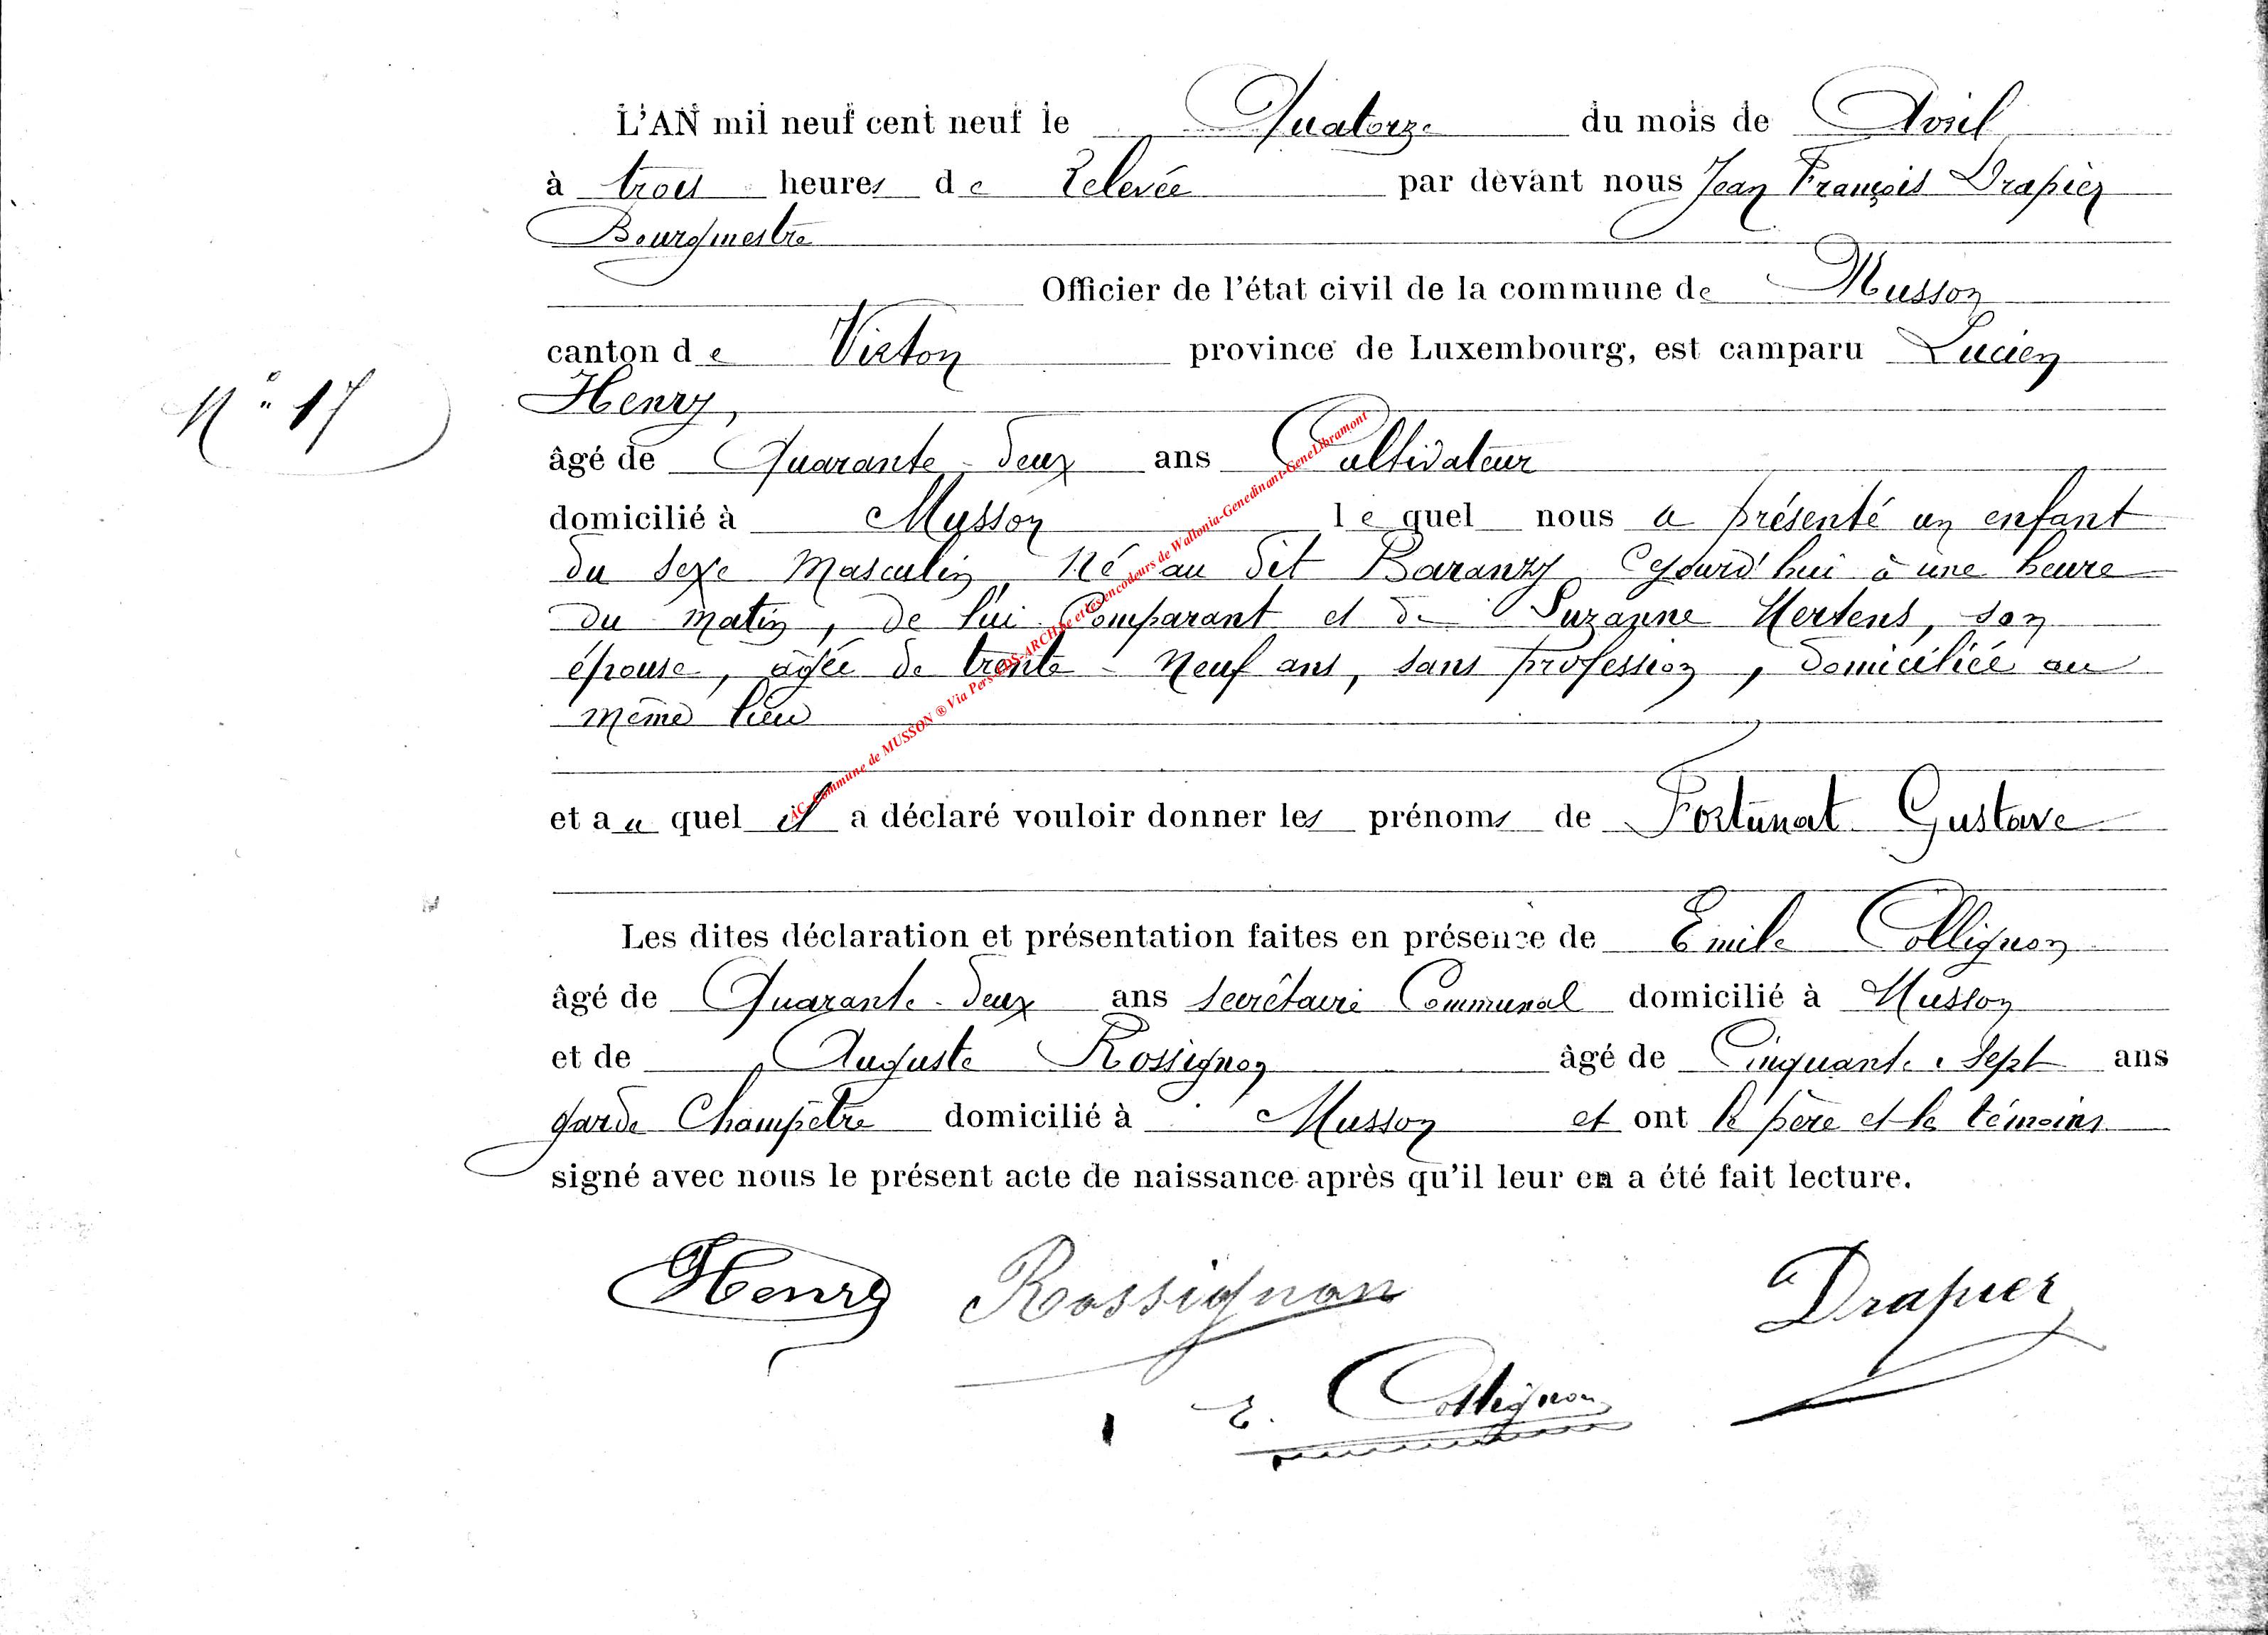 L'AN mil neuf cent neuf le Quatorze du mois de Avril
à trois heures de Relevée par devant nous Jean François Drapier
Bourgmestre
Officier de l'état civil de la commune de Musson
canton de Virton province de Luxembourg, est camparu Lucien
N° 17
Henry,
âgé de Quarante-deux ans Cultivateur
domicilié à Musson lequel nous a présenté un enfant
du sexe masculin, né au dit Baranzy Cejourd'hui à une heure
du matin, de lui Comparant et de Suzanne Mertens, son
épouse, âgée de trente-neuf ans, sans profession, domiciliée au
même lieu
AC-Commune de MUSSON ® Via Pers-CDS-ARCH.be et les encodeurs de Wallonia-Genedinant-GeneLibramont
et a u quel il a déclaré vouloir donner les prénoms de Fortunat Gustave
Les dites déclaration et présentation faites en présence de Emile Collignon
âgé de Quarante-deux ans secrétaire Communal domicilié à Musson
et de Auguste Rossignon âgé de Cinquante-sept ans
garde Champêtre domicilié à Musson et ont le père et les témoins
signé avec nous le présent acte de naissance après qu'il leur en a été fait lecture.
Henry Rossignon Drapier
E. Collignon